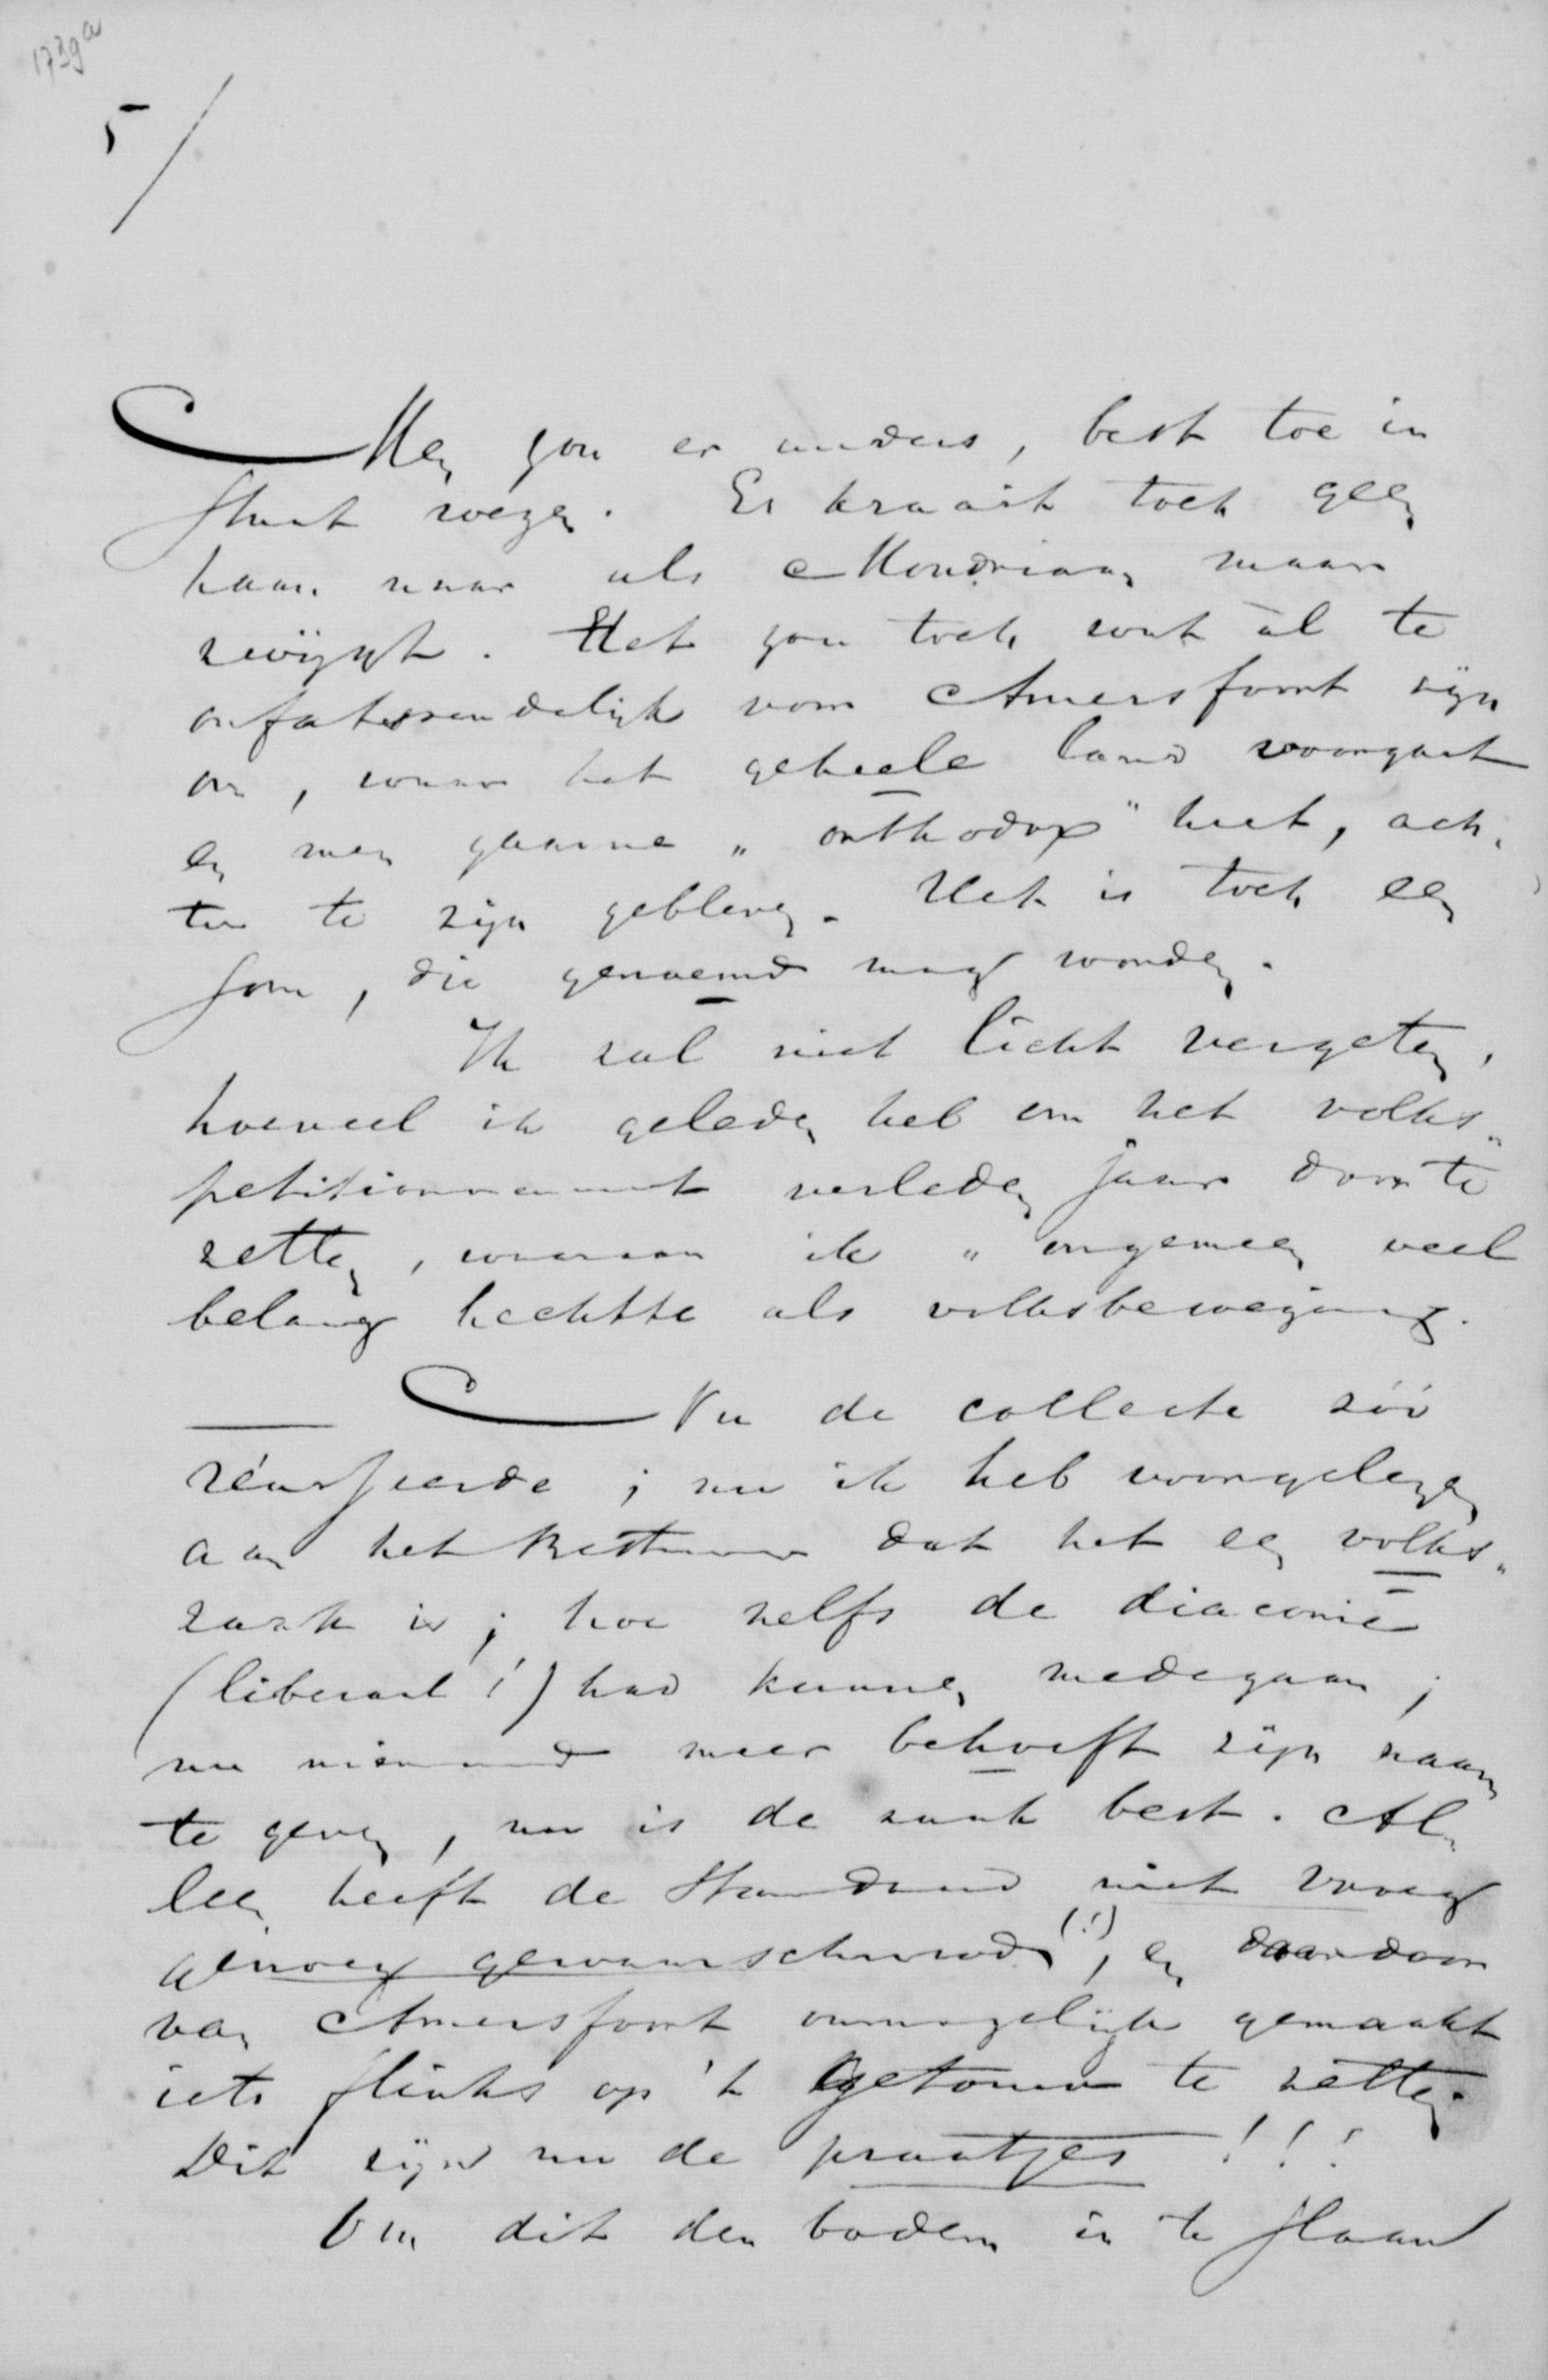 1739a
5/
Men zou er anders, best toe in
staat wezen. Er kraait toch geen
haan naar als Mondriaan maar
zwijgt. Het zou toch wat àl te
onfatsoendelijk voor Amersfoort zijn
om, waar het geheele land voorgaat
en men gaarne „orthodox" heet, ach„
ter te zijn gebleven. Het is toch een
som, die genoemd mag worden.
Ik zal niet licht vergeten,
hoeveel ik geleden heb om het volks„
petitionnement verleden jaar door te
zetten, waaraan ik ongemeen veel
belang hechtte als volksbeweging.
Nu de collecte zóó
réusseerde; nu ik heb voorgelezen
aan het Bestuur dat het een volks„
zaak is; hoe zelfs de diaconie
(liberaal!) had kunnen medegaan;
nu niemand meer behoeft zijn naam
te geven, nu is de zaak best. Al„
leen heeft de Standaard niet vroeg
genoeg gewaarschuwd (!), en daardoor
van Amersfoort onmogelijk gemaakt
iets flinks op 't getouw te zetten.
Dit zijn nu de praatjes!!!
Om dit den bodem in te slaan